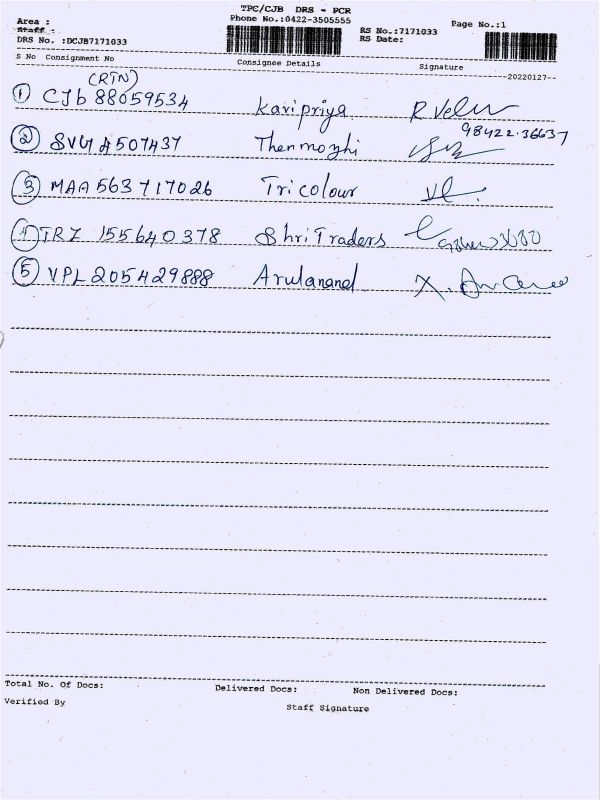 TPC/CJB DRS - PCR
Area : Phone No.:0422-3505555 Page No.:1
Staff : RS No.:7171033
DRS No. :DCJB7171033 RS Date:
S No Consignment No Consignee Details Signature
--20220127--
(RTN)
1 CJb 88059534 Karipriya R Velu
98422-36637
2 Thenmozhi
3 MAA 563717026 Tricolour
4 TRZ 155640378 Shri Traders
5 VPL 205429888 Arulanand
Total No. Of Docs: Delivered Docs: Non Delivered Docs:
Verified By Staff Signature